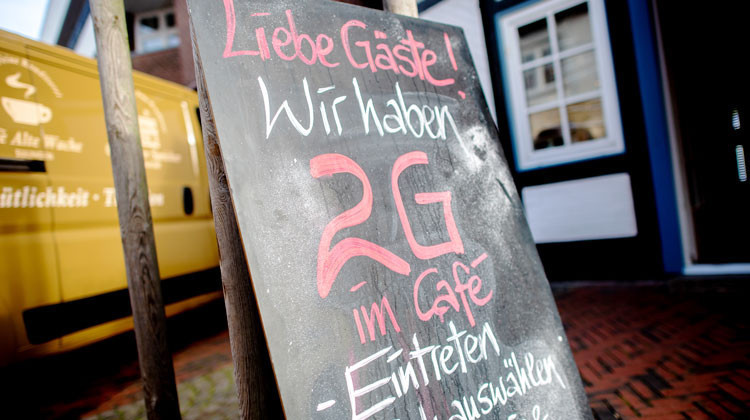 Liebe Gäste!
Wir haben
2G
im Café
- Eintreten
auswählen
Alte Wache